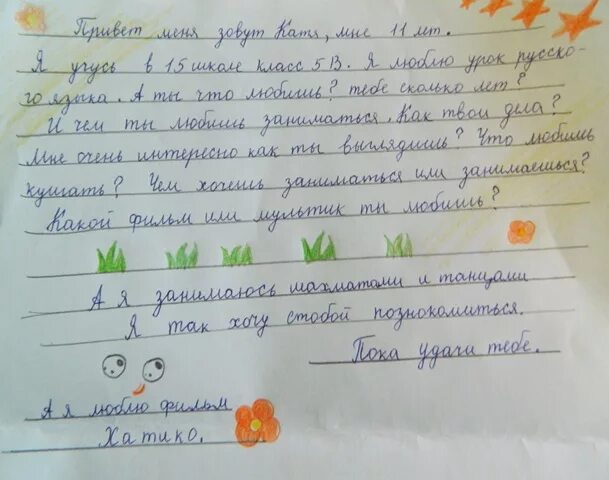 Привет меня зовут Катя, мне 11 лет.
Я учусь в 15 школе класс 5В. Я люблю урок русско-
го языка. А ты что любишь? тебе сколько лет?
И чем ты любишь заниматься. Как твои дела?
Мне очень интересно как ты выглядишь? Что любишь
кушать? Чем хочешь заниматься или занимаешься?
Какой фильм или мультик ты любишь?
А я занимаюсь шахматами и танцами
Я так хочу стобой познокомиться.
Пока удачи тебе.
А я люблю фильм
Хатико.